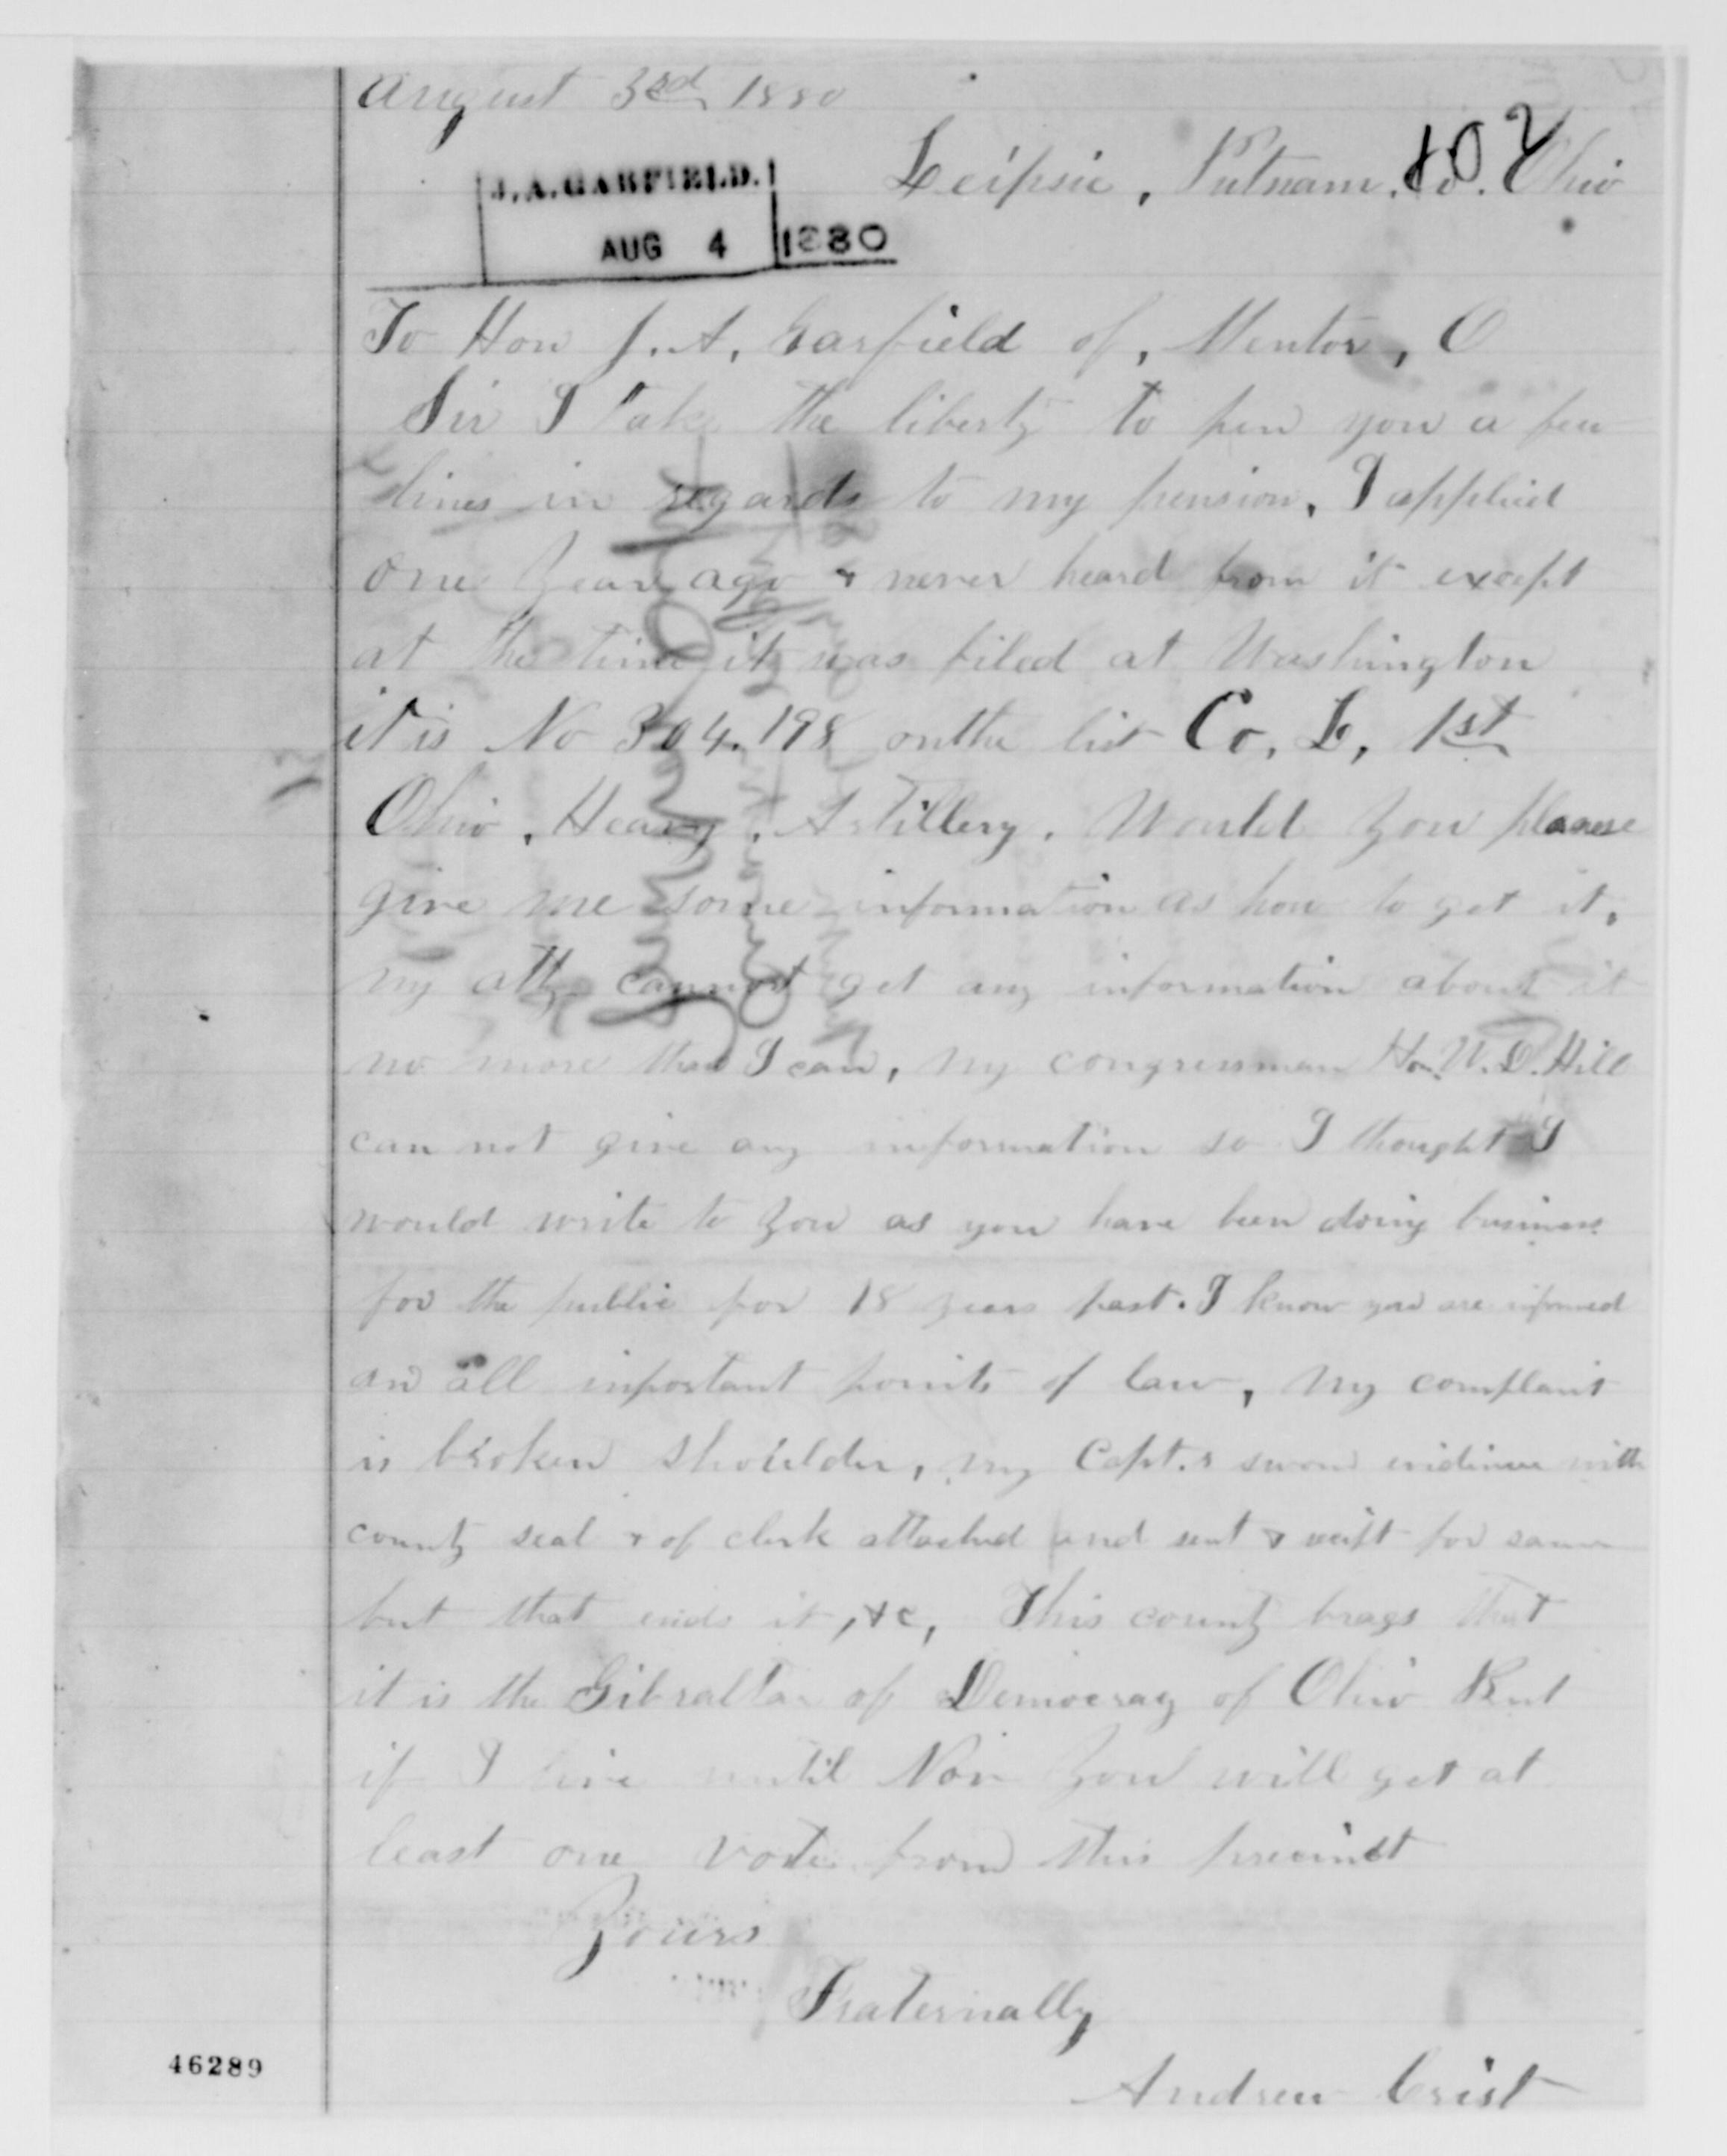 August 3rd, 1880
Leipsic, Putnam, Co. Ohio
102
J.A. GARFIELD.
AUG 4 1880
To Hon J. A. Garfield of, Mentor, O
Sir I take the liberty to pen you a few
lines in regards to my pension, I applied
one Year ago & never heard from it except
at the time it was filed at Washington
it is No 304.198 on the list Co, L, 1st
Ohio, Heavy, Artillery. Would You please
give me some information as how to get it,
my atty cannot get any information about it
no more than I can, my congressman Hon. W. D. Hill
can not give any information so I thought I
would write to You as you have been doing business
for the public for 18 years past. I know you are informed
on all important points of law, my complaint
is broken shoulder, my Capt.s sworn evidence with
county seal & of clerk attached and sent & rec'pt for same
but that ends it, &c, This county brags that
it is the Gibraltar of Democracy of Ohio But
if I live until Nov You will get at
least one vote from this precinct
Yours
Fraternally
Andrew Crist
46289